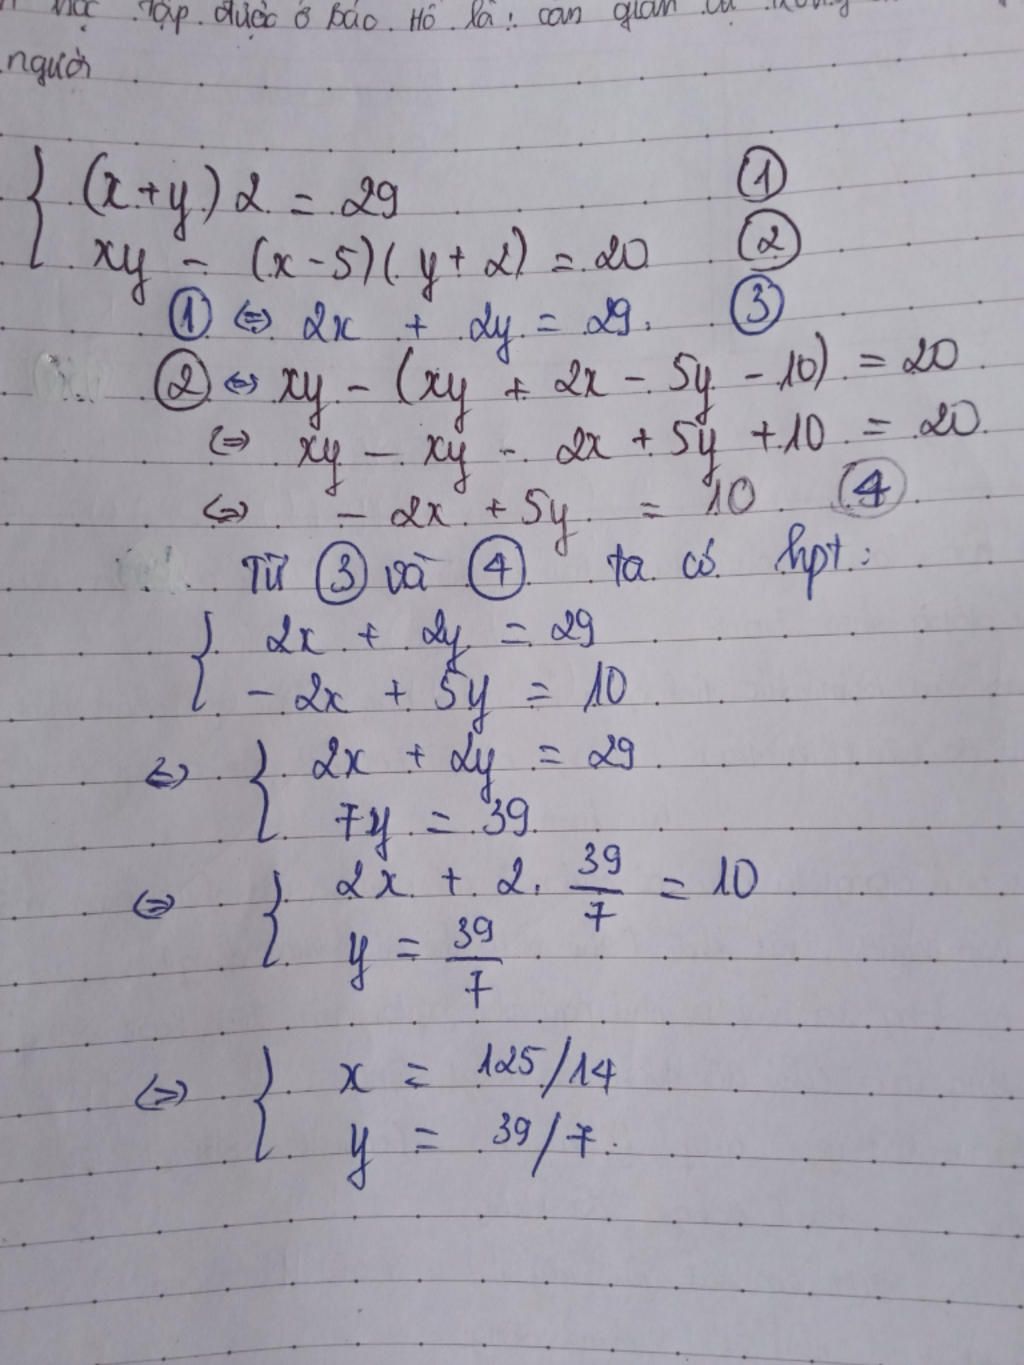 tập được ở Bác Hồ là: cần giản
người
{ (x+y)2 = 29 ①
xy - (x-5)(y+2) = 20 ②
① ⇔ 2x + 2y = 29. ③
② ⇔ xy - (xy + 2x - 5y - 10) = 20
⇔ xy - xy - 2x + 5y + 10 = 20
⇔ - 2x + 5y = 10 ④
Từ ③ và ④ ta có hpt:
{ 2x + 2y = 29
- 2x + 5y = 10
⇔ { 2x + 2y = 29
7y = 39
⇔ { 2x + 2. 39/7 = 10
y = 39/7
⇔ { x = 125/14
y = 39/7.